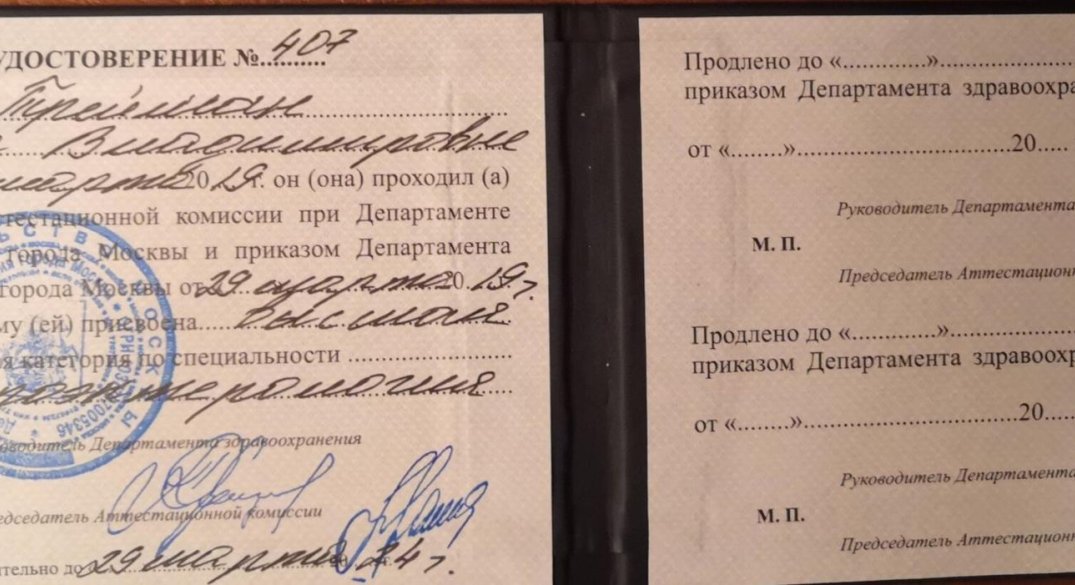 УДОСТОВЕРЕНИЕ №.407
Трейман
Владимировне
марта 2019г. он (она) проходил (а)
тестационной комиссии при Департаменте
города Москвы и приказом Департамента
города Москвы от 29 марта 2019 г.
му (ей) присвоена высшая
я категория по специальности
оводитель Департамента здравоохранения
редседатель Аттестационной комиссии
ительно до 29 марта 2024 г.
Продлено до «............».....................
приказом Департамента здравоохра
от «........»...................................20.....
Руководитель Департамента
М. П.
Председатель Аттестационн
Продлено до «............».....................
приказом Департамента здравоохр
от «........»...................................20.....
Руководитель Департамента
М. П.
Председатель Аттестационн